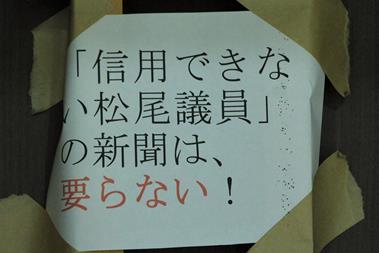 「信用できな
い松尾議員」
の新聞は、
要らない！